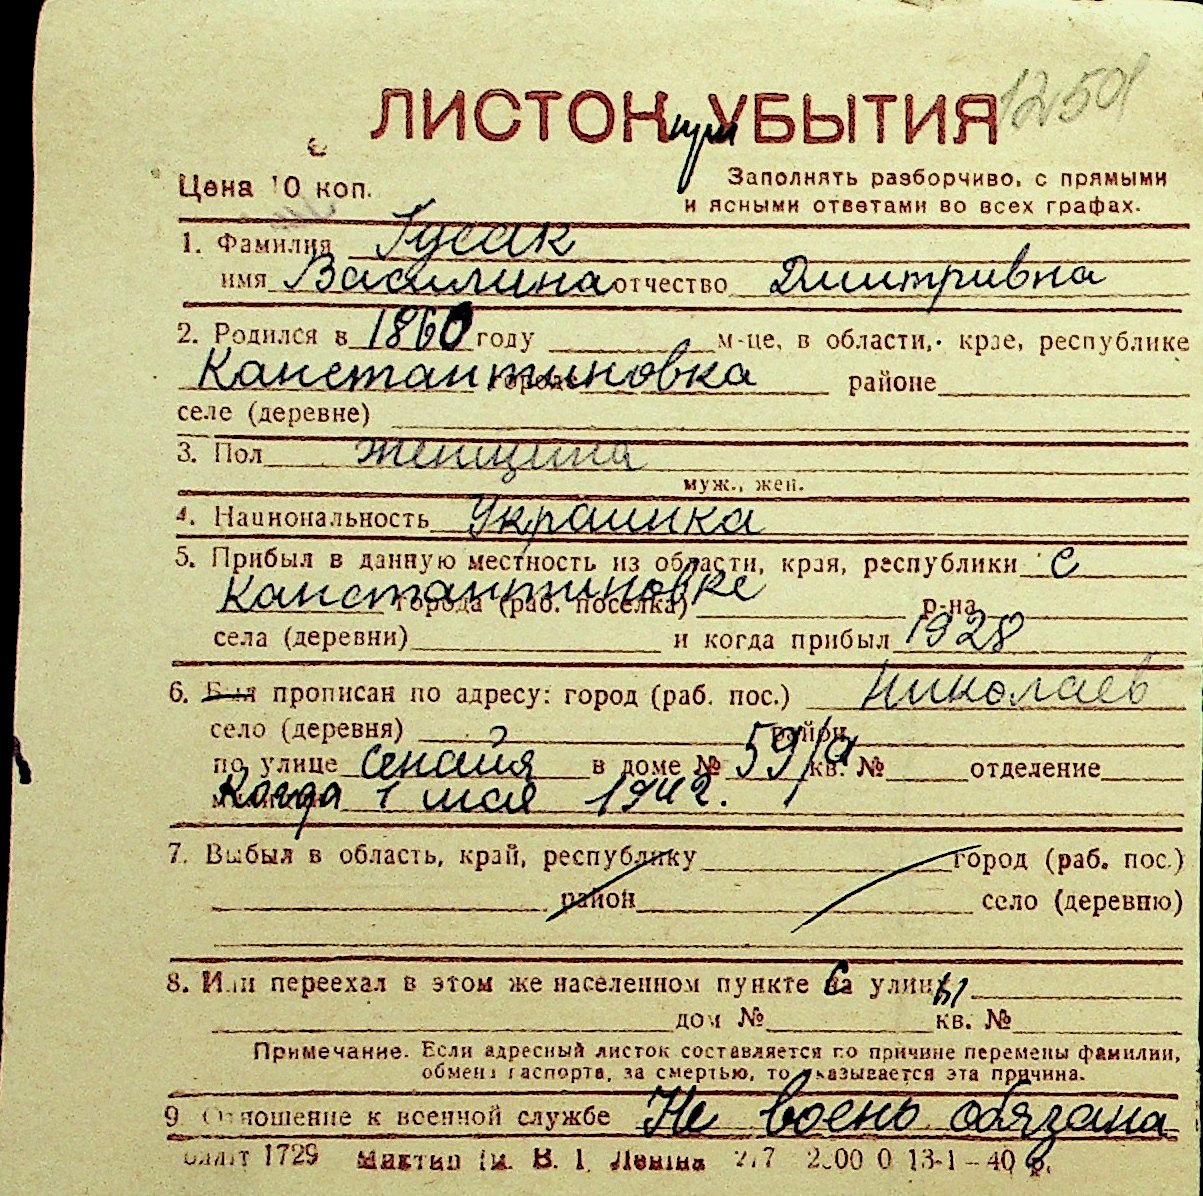 1259
ЛИСТОК при УБЫТИЯ
Цена 10 коп.
Заполнять разборчиво, с прямыми
и ясными ответами во всех графах.
1. Фамилия Гусак
имя Василина отчество Дмитривна
2. Родился в 1860 году м-це, в области, крае, республике
Канстантиновка городе районе
селе (деревне)
3. Пол женщина
муж., жен.
4. Национальность Украинка
5. Прибыл в данную местность из области, края, республики с
Канстантиновке города (раб. поселка) р-на
села (деревни) и когда прибыл 1928
6. Был прописан по адресу: город (раб. пос.) Николаев
село (деревня) район
по улице сеная в доме № 59/а кв. № отделение
милиции Когда 1 мая 1942.
7. Выбыл в область, край, республику город (раб. пос.)
район село (деревню)
8. Или переехал в этом же населенном пункте с на улицы
дом № кв. №
Примечание. Если адресный листок составляется по причине перемены фамилии,
обмена паспорта, за смертью, то указывается эта причина.
9. Отношение к военной службе Не воень обязана
1729 В. І. Леніна 13-1-40 р.